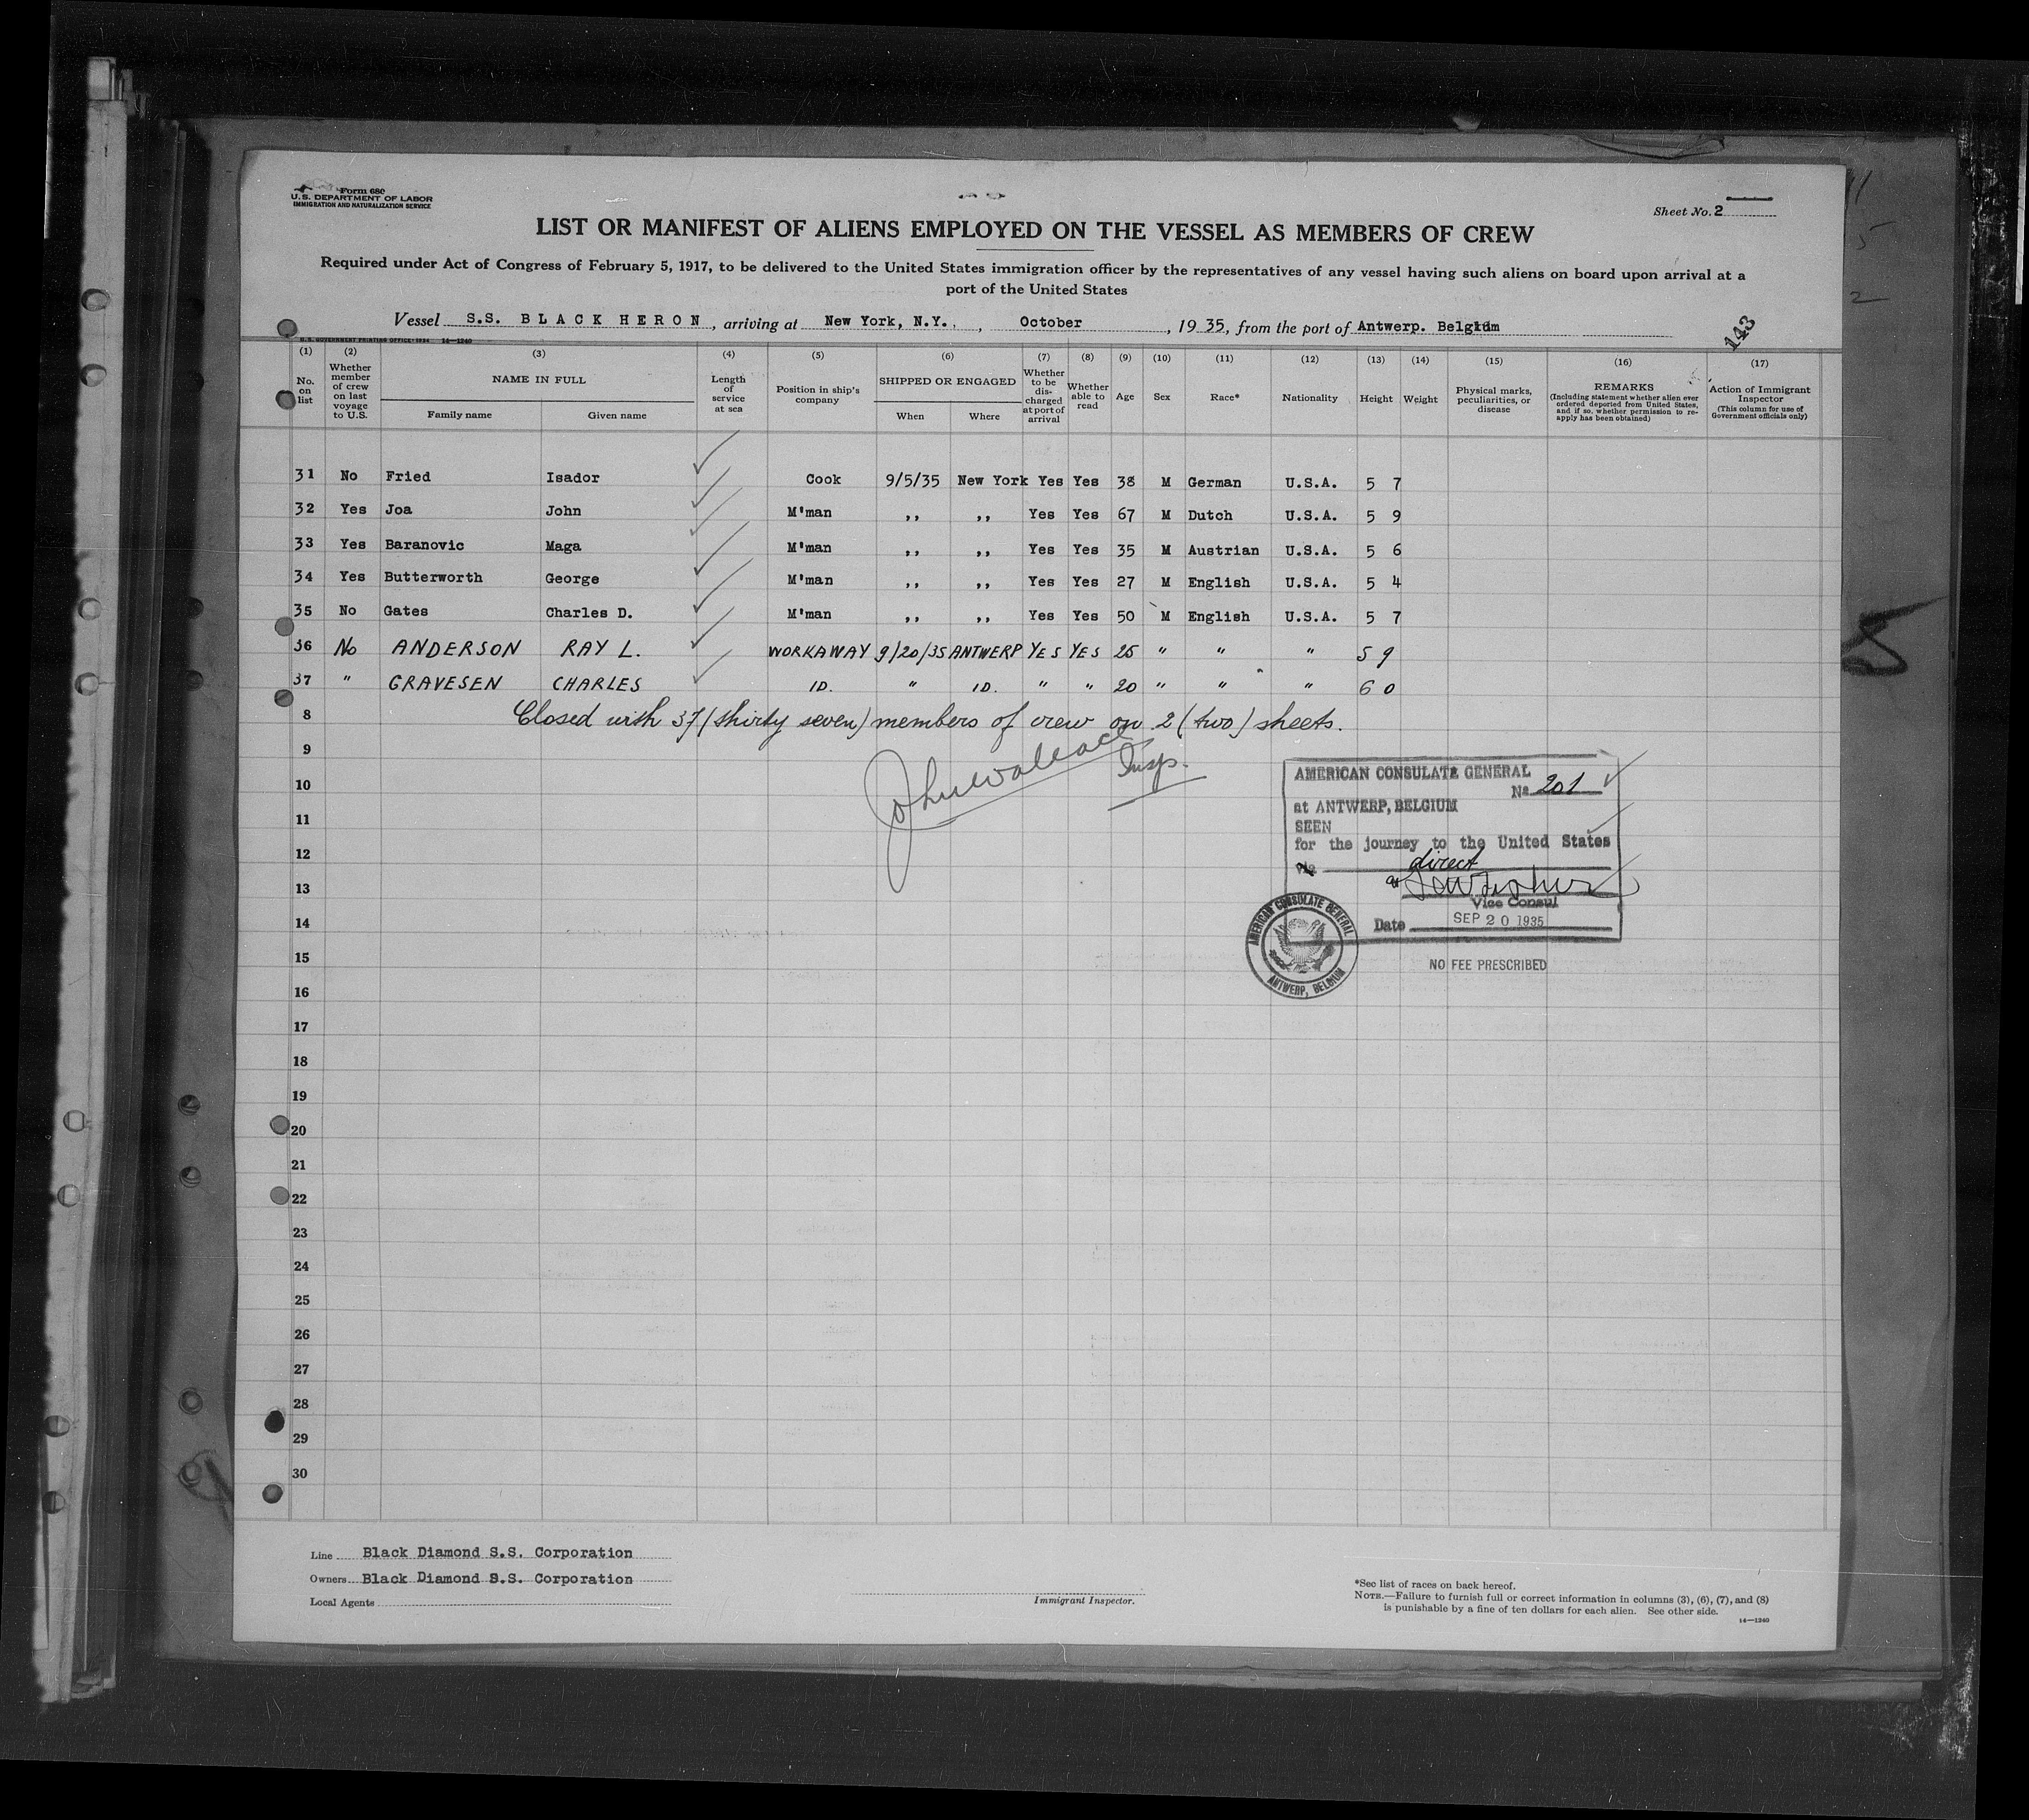 Form 680
U.S. DEPARTMENT OF LABOR
IMMIGRATION AND NATURALIZATION SERVICE
Sheet No. 2
LIST OR MANIFEST OF ALIENS EMPLOYED ON THE VESSEL AS MEMBERS OF CREW
Required under Act of Congress of February 5, 1917, to be delivered to the United States immigration officer by the representatives of any vessel having such aliens on board upon arrival at a
port of the United States
Vessel S.S. BLACK HERON, arriving at New York, N.Y., October, 1935, from the port of Antwerp. Belgium
143
U.S. GOVERNMENT PRINTING OFFICE: 1934 14—1240
(1) (2) (3) (4) (5) (6) (7) (8) (9) (10) (11) (12) (13) (14) (15) (16) (17)
No. on list
Whether member of crew on last voyage to U.S.
NAME IN FULL
Family name Given name
Length of service at sea
Position in ship's company
SHIPPED OR ENGAGED
When Where
Whether to be discharged at port of arrival
Whether able to read
Age
Sex
Race*
Nationality
Height
Weight
Physical marks, peculiarities, or disease
REMARKS
(Including statement whether alien ever ordered deported from United States, and if so, whether permission to re-apply has been obtained)
Action of Immigrant Inspector
(This column for use of Government officials only)
31 No Fried Isador Cook 9/5/35 New York Yes Yes 38 M German U.S.A. 5 7
32 Yes Joa John M'man ,, ,, Yes Yes 67 M Dutch U.S.A. 5 9
33 Yes Baranovic Maga M'man ,, ,, Yes Yes 35 M Austrian U.S.A. 5 6
34 Yes Butterworth George M'man ,, ,, Yes Yes 27 M English U.S.A. 5 4
35 No Gates Charles D. M'man ,, ,, Yes Yes 50 M English U.S.A. 5 7
36 No ANDERSON RAY L. WORKAWAY 9/20/35 ANTWERP YES YES 25 " " " 5 9
37 " GRAVESEN CHARLES ID. " ID. " " 20 " " " 6 0
8 Closed with 37 (thirty seven) members of crew on 2 (two) sheets.
9
John Wallace Insp.
10
11
12
13
14
15
16
17
18
19
20
21
22
23
24
25
26
27
28
29
30
AMERICAN CONSULATE GENERAL
No 201
at ANTWERP, BELGIUM
SEEN
for the journey to the United States
via direct
Vice Consul
Date SEP 20 1935
NO FEE PRESCRIBED
AMERICAN CONSULATE GENERAL
ANTWERP, BELGIUM
Line Black Diamond S.S. Corporation
Owners Black Diamond S.S. Corporation
Local Agents
Immigrant Inspector.
*See list of races on back hereof.
NOTE.—Failure to furnish full or correct information in columns (3), (6), (7), and (8)
is punishable by a fine of ten dollars for each alien. See other side.
14—1240